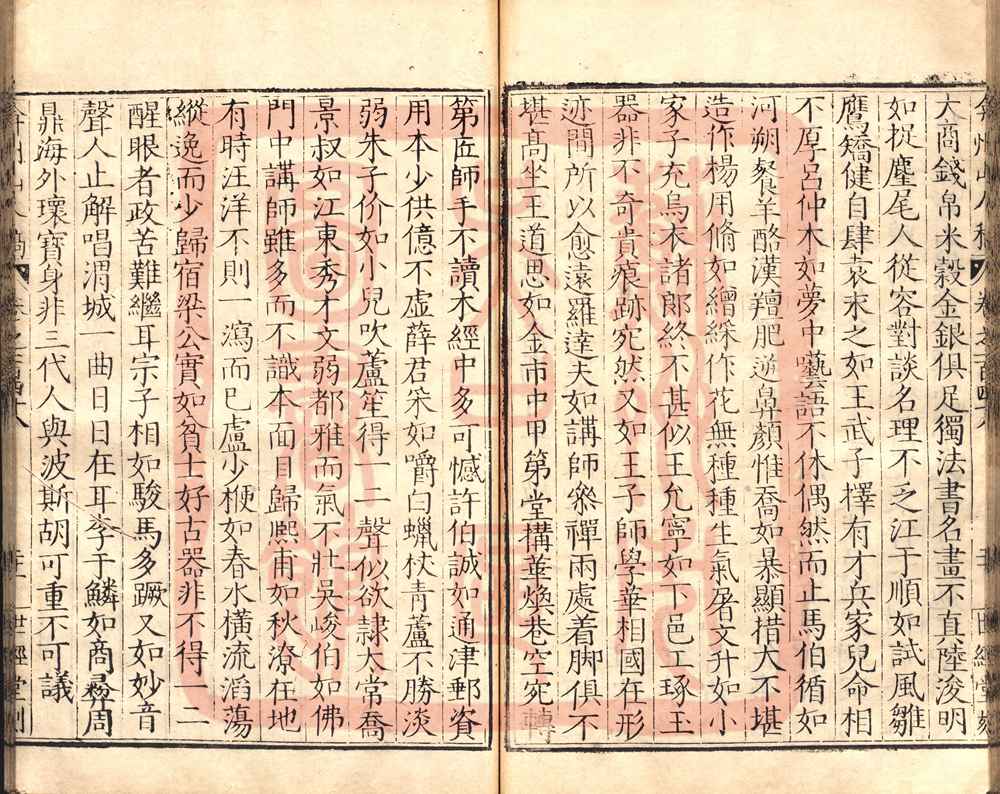 大商錢帛米穀金銀俱足獨法書名畫不真陸浚明
如捉麈尾人從容對談名理不乏江于順如試風雛
鷹矯健自肆袁永之如王武子擇有才兵家兒命相
不厚呂仲木如夢中囈語不休偶然而止馬伯循如
河朔餐羊酪漢羶肥逆鼻顏惟喬如暴顯措大不堪
造作楊用脩如繒綵作花無種種生氣屠文升如小
家子充烏衣諸郎終不甚似王允寧如下邑工琢玉
器非不奇貴痕跡宛然又如王子師學華相國在形
迹間所以愈遠羅達夫如講師參禪兩處着脚俱不
堪高坐王道思如金市中甲第堂構華煥巷空宛轉
第匠師手不讀木經中多可憾許伯誠如通津郵資
用本少供億不虛薛君采如嚼白蠟杖青蘆不勝淡
弱朱子价如小兒吹蘆笙得一二聲似欲隷太常喬
景叔如江東秀才文弱都雅而氣不壯吳峻伯如佛
門中講師雖多而不識本面目歸熙甫如秋潦在地
有時汪洋不則一瀉而已盧少楩如春水横流滔蕩
縱逸而少歸宿梁公實如貧士好古器非不得一二
醒眼者政苦難繼耳宗子相如駿馬多蹶又如妙音
聲人止解唱渭城一曲日日在耳李于鱗如商彝周
鼎海外瓌寶身非三代人與波斯胡可重不可議
世經堂刻